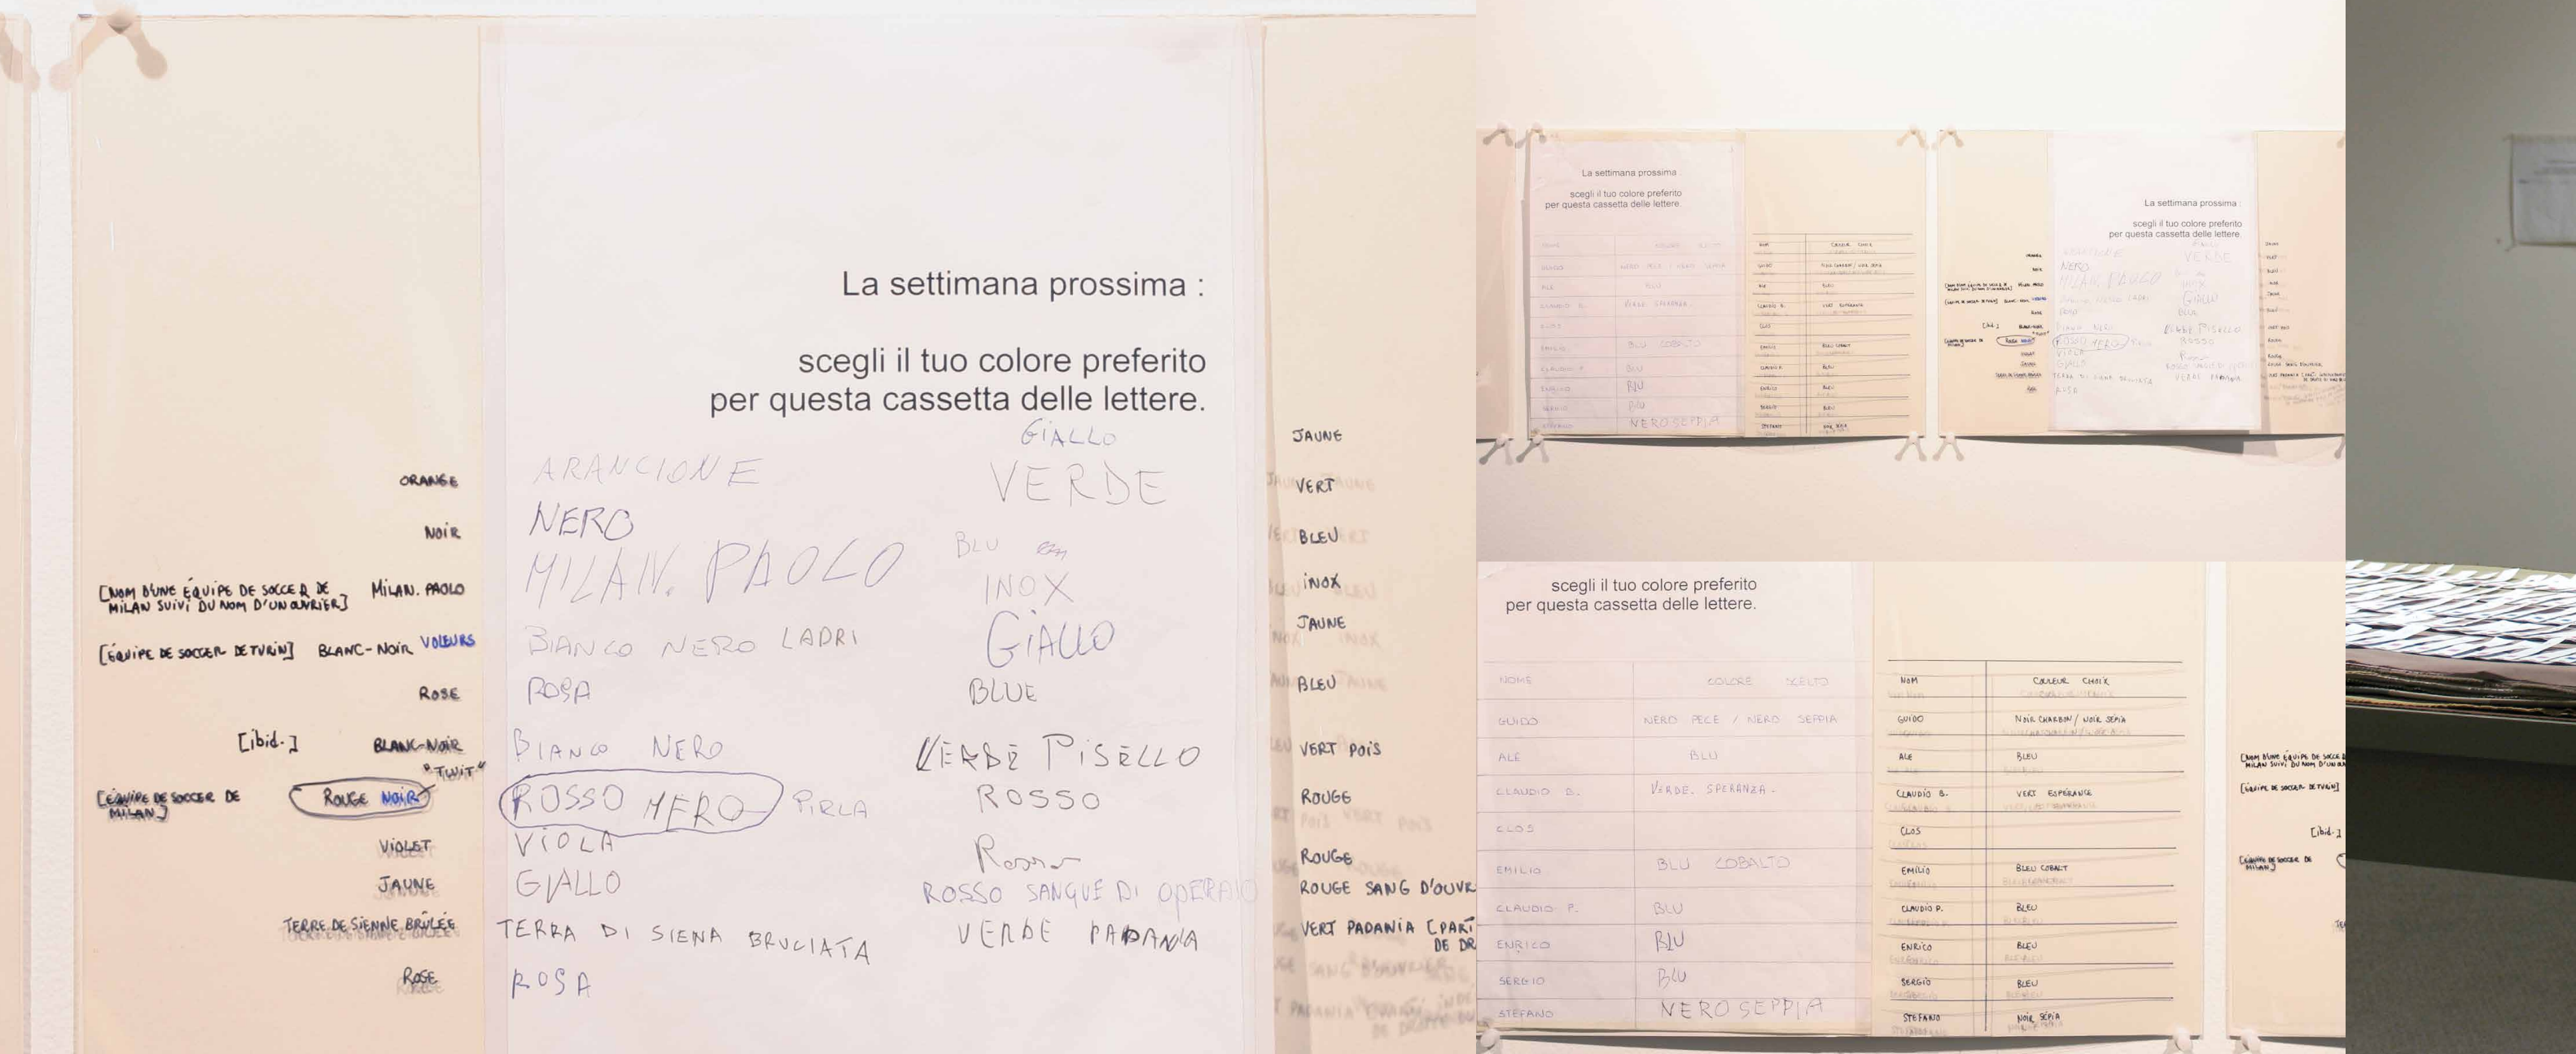 La settimana prossima :
scegli il tuo colore preferito
per questa cassetta delle lettere.
ORANGE
NOIR
[NOM D'UNE ÉQUIPE DE SOCCER DE
MILAN SUIVI DU NOM D'UN OUVRIER]
MILAN. PAOLO
[ÉQUIPE DE SOCCER DE TURIN] BLANC-NOIR VOLEURS
ROSE
[ibid.] BLANC-NOIR
"TWIT"
[ÉQUIPE DE SOCCER DE
MILAN]
ROUGE NOIR
VIOLET
JAUNE
TERRE DE SIENNE BRÛLÉE
ROSE
ARANCIONE
NERO
MILAN. PAOLO
BIANCO NERO LADRI
ROSA
BIANCO NERO
ROSSO NERO PIRLA
VIOLA
GIALLO
TERRA DI SIENA BRUCIATA
ROSA
GIALLO
VERDE
BLU
INOX
GIALLO
BLUE
VERDE PISELLO
ROSSO
Rosso
ROSSO SANGUE DI OPERAIO
VERDE PADANIA
JAUNE
VERT
BLEU
INOX
JAUNE
BLEU
VERT POIS
ROUGE
ROUGE
ROUGE SANG D'OUVR
VERT PADANIA [PARTI
DE DR
La settimana prossima
scegli il tuo colore preferito
per questa cassetta delle lettere.
La settimana prossima :
scegli il tuo colore preferito
per questa cassetta delle lettere.
scegli il tuo colore preferito
per questa cassetta delle lettere.
NOME COLORE SCELTO
GUIDO NERO PECE / NERO SEPPIA
ALE BLU
CLAUDIO B. VERDE. SPERANZA.
CLOS
EMILIO BLU COBALTO
CLAUDIO P. BLU
ENRICO BLU
SERGIO BLU
STEFANO NERO SEPPIA
NOM COULEUR CHOIX
GUIDO NOIR CHARBON / NOIR SÉPIA
ALE BLEU
CLAUDIO B. VERT ESPÉRANCE
CLOS
EMILIO BLEU COBALT
CLAUDIO P. BLEU
ENRICO BLEU
SERGIO BLEU
STEFANO NOIR SÉPIA
[NOM D'UNE ÉQUIPE DE SOCCE
MILAN SUIVI DU NOM D'UN
[ÉQUIPE DE SOCCER DE TURIN]
[ibid.]
[ÉQUIPE DE SOCCER DE
MILAN]